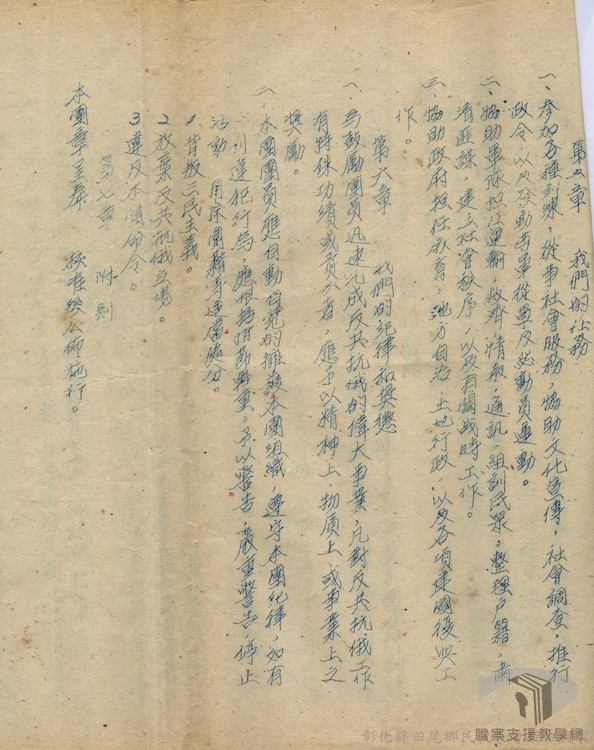 第五章　我們的任務
一、參加各種訓練，從事社會服務，協助文化宣傳，社會調查，推行
政令，以及發動勞軍從軍及總動員運動。
二、協助軍隊担任運輸，救濟情報，通訊，組訓民眾，整理戶籍，肅
清匪諜，建立社會秩序，以及有關戰時工作。
三、協助政府担任教育，地方自治，土地行政，以及各項建國復興工
作。
第六章　我們的紀律和獎懲
一、為鼓勵團員迅速完成反共抗俄的偉大事業，凡對反共抗俄工作
有特殊功績或貢獻者，應予以精神上，物質上，或事業上之
獎勵。
二、本團團員應自動自覺的擁護本團組織，遵守本團紀律，如有
列違犯行為，應根據情節輕重，予以警告，嚴重警告，停止
活動　開除團籍等適當處分。
1 背叛三民主義。
2 放棄反共抗俄立場。
3 違反本團命令。
第七章　附則
本團章呈奉　核准後公佈施行。
彰化縣田尾鄉民
檔案支援教學網